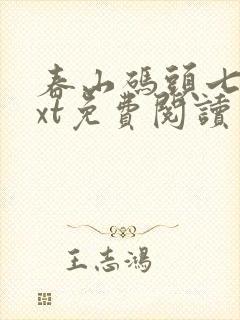 春山碼頭七
xt免費閱讀
王志鴻